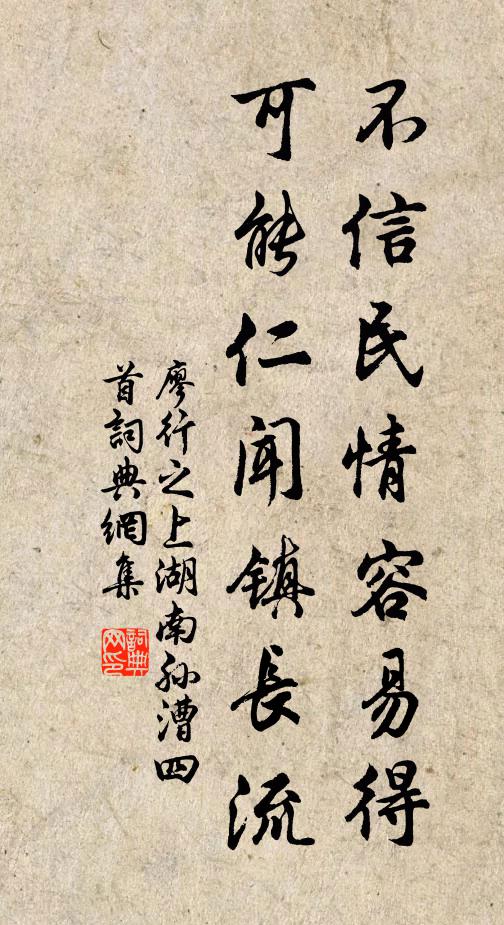 不信民情容易得
可能仁闻镇長流
廖行之上湖南孙漕四
首詞典網集
詞典
网印